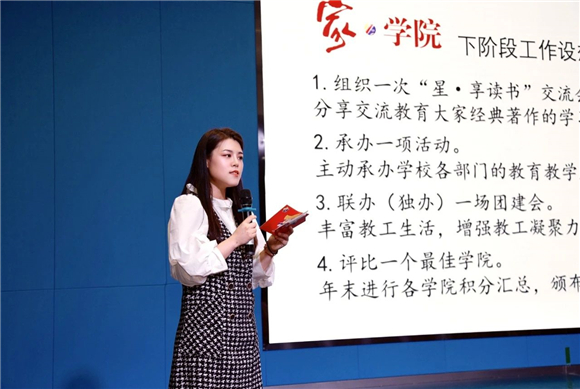 家·学院
下阶段工作设
1.组织一次“星·享读书”交流
分享交流教育大家经典著作的学
2.承办一项活动。
主动承办学校各部门的教育教学
3.联办（独办）一场团建会。
丰富教工生活，增强教工凝聚力
4.评比一个最佳学院。
年末进行各学院积分汇总，颁